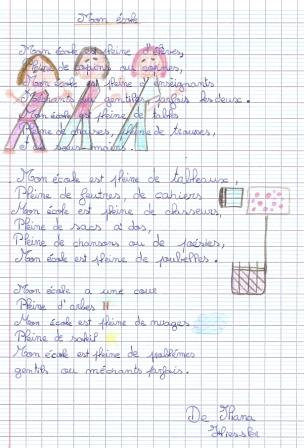 Mon école
Mon école est pleine d'élèves,
Pleine de copains ou copines,
Mon école est pleine d'enseignants
Méchants ou gentils parfois les deux.
Mon école est pleine de tables
Pleine de chaises, pleine de trousses,
et de sous-mains.
Mon école est pleine de tableaux,
Pleine de feutres, de cahiers
Mon école est pleine de classeurs,
Pleine de sacs à dos,
Pleine de chansons ou de poésies,
Mon école est pleine de poubelles.
Mon école a une cour
Pleine d'arbres
Mon école est pleine de nuages
Pleine de soleil
Mon école est pleine de poèmes
gentils ou méchants parfois.
De